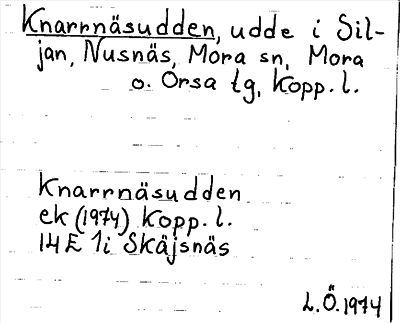 Knarrnäsudden, udde i Sil-
jan, Nusnäs, Mora sn, Mora
o. Orsa tg, Kopp. l.
Knarrnäsudden
ek (1974) Kopp. l.
14E 1i Skäjsnäs
L.Ö. 1974